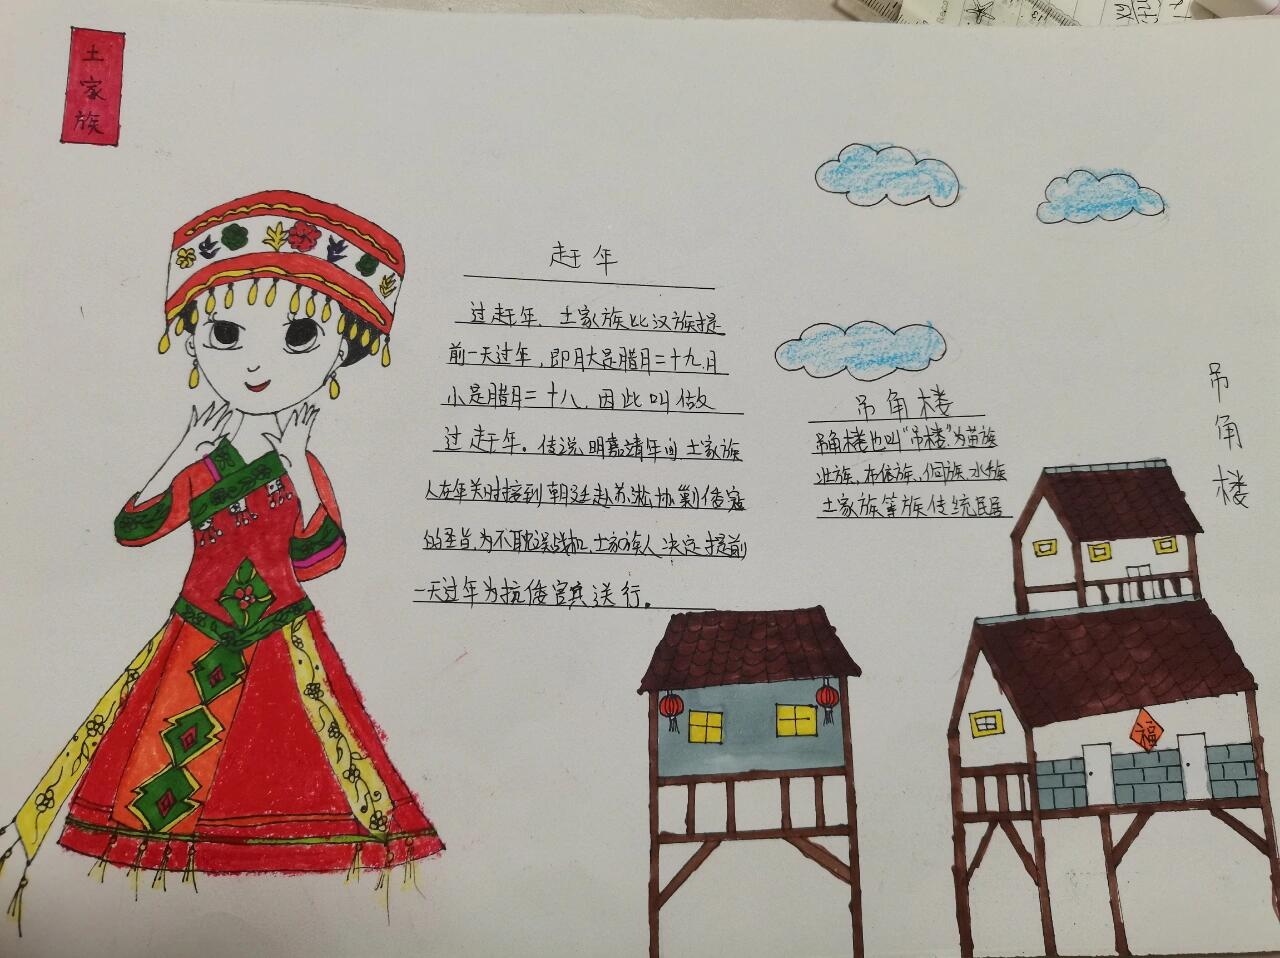 土家族
赶年
过赶年,土家族比汉族提
前一天过年,即月大是腊月二十九,月
小是腊月二十八,因此叫做
过赶年。传说明嘉靖年间,土家族
人在年关时接到朝廷赴苏淞协剿倭寇
的圣旨,为不耽误战机,土家族人决定提前
一天过年为抗倭官兵送行。
吊角楼
吊角楼也叫“吊楼”为苗族
壮族、布依族、侗族、水族
土家族等族传统民居
吊角楼
福